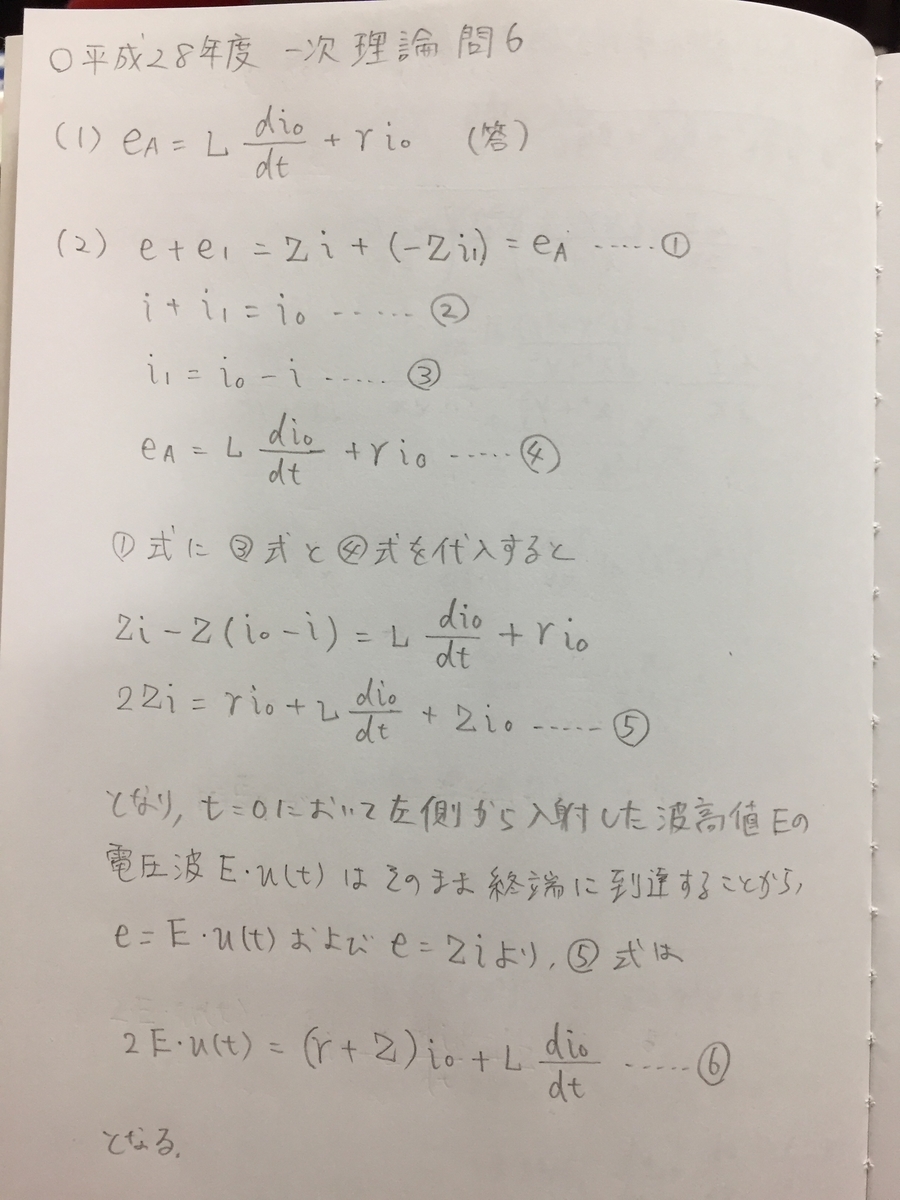 ○平成28年度 一次 理論 問6
(1) eA = L di₀/dt + r i₀ (答)
(2) e + e₁ = Zi + (-Zi₁) = eA ‥‥‥①
i + i₁ = i₀ ‥‥‥②
i₁ = i₀ - i ‥‥‥③
eA = L di₀/dt + r i₀ ‥‥‥④
①式に③式と④式を代入すると
Zi - Z(i₀ - i) = L di₀/dt + r i₀
2Zi = r i₀ + L di₀/dt + Z i₀ ‥‥‥⑤
となり, t=0において左側から入射した波高値Eの
電圧波E・u(t)はそのまま終端に到達することから,
e = E・u(t)およびe = Ziより, ⑤式は
2E・u(t) = (r + Z) i₀ + L di₀/dt ‥‥‥⑥
となる.